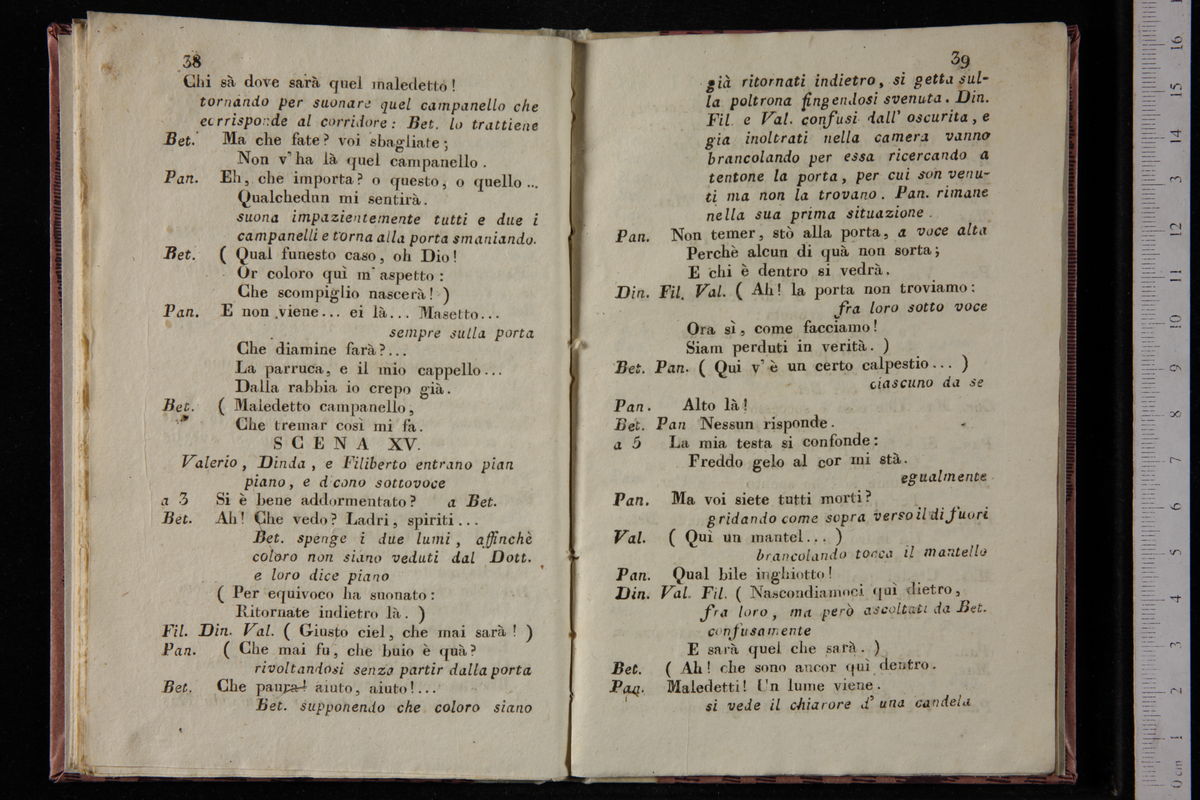 38
Chi sà dove sarà quel maledetto!
tornando per suonare quel campanello che
ccrrisponde al corridore: Bet. lo trattiene
Bet. Ma che fate? voi sbagliate;
Non v'ha là quel campanello.
Pan. Eh, che importa? o questo, o quello...
Qualchedun mi sentirà.
suona impazientemente tutti e due i
campanelli e torna alla porta smaniando.
Bet. ( Qual funesto caso, oh Dio!
Or coloro quì m'aspetto:
Che scompiglio nascerà! )
Pan. E non viene... ei là... Masetto...
sempre sulla porta
Che diamine farà?...
La parruca, e il mio cappello...
Dalla rabbia io crepo già.
Bet. ( Maledetto campanello,
Che tremar così mi fa.
SCENA XV.
Valerio, Dinda, e Filiberto entrano pian
piano, e dcono sottovoce
a 3 Si è bene addormentato? a Bet.
Bet. Ah! Che vedo? Ladri, spiriti...
Bet. spenge i due lumi, affinchè
coloro non siano veduti dal Dott.
e loro dice piano
( Per equivoco ha suonato:
Ritornate indietro là. )
Fil. Din. Val. ( Giusto ciel, che mai sarà! )
Pan. ( Che mai fu, che buio è quà?
rivoltandosi senza partir dalla porta
Bet. Che paura! aiuto, aiuto!...
Bet. supponendo che coloro siano
39
già ritornati indietro, si getta sul-
la poltrona fingendosi svenuta. Din.
Fil e Val. confusi dall' oscurita, e
gia inoltrati nella camera vanno
brancolando per essa ricercando a
tentone la porta, per cui son venu-
ti ma non la trovano. Pan. rimane
nella sua prima situazione.
Pan. Non temer, stò alla porta, a voce alta
Perchè alcun di quà non sorta;
E chi è dentro si vedrà.
Din. Fil. Val. ( Ah! la porta non troviamo:
fra loro sotto voce
Ora sì, come facciamo!
Siam perduti in verità. )
Bet. Pan. ( Qui v'è un certo calpestio... )
ciascuno da se
Pan. Alto là!
Bet. Pan Nessun risponde.
a 5 La mia testa si confonde:
Freddo gelo al cor mi stà.
egualmente
Pan. Ma voi siete tutti morti?
gridando come sopra verso il di fuori
Val. ( Quì un mantel... )
brancolando tocca il mantello
Pan. Qual bile inghiotto!
Din. Val. Fil. ( Nascondiamoci quì dietro,
fra loro, ma però ascoltati da Bet.
confusamente
E sarà quel che sarà. )
Bet. ( Ah! che sono ancor quì dentro.
Pan. Maledetti! Un lume viene.
si vede il chiarore d'una candela
0 cm 1 2 3 4 5 6 7 8 9 10 11 12 13 14 15 16